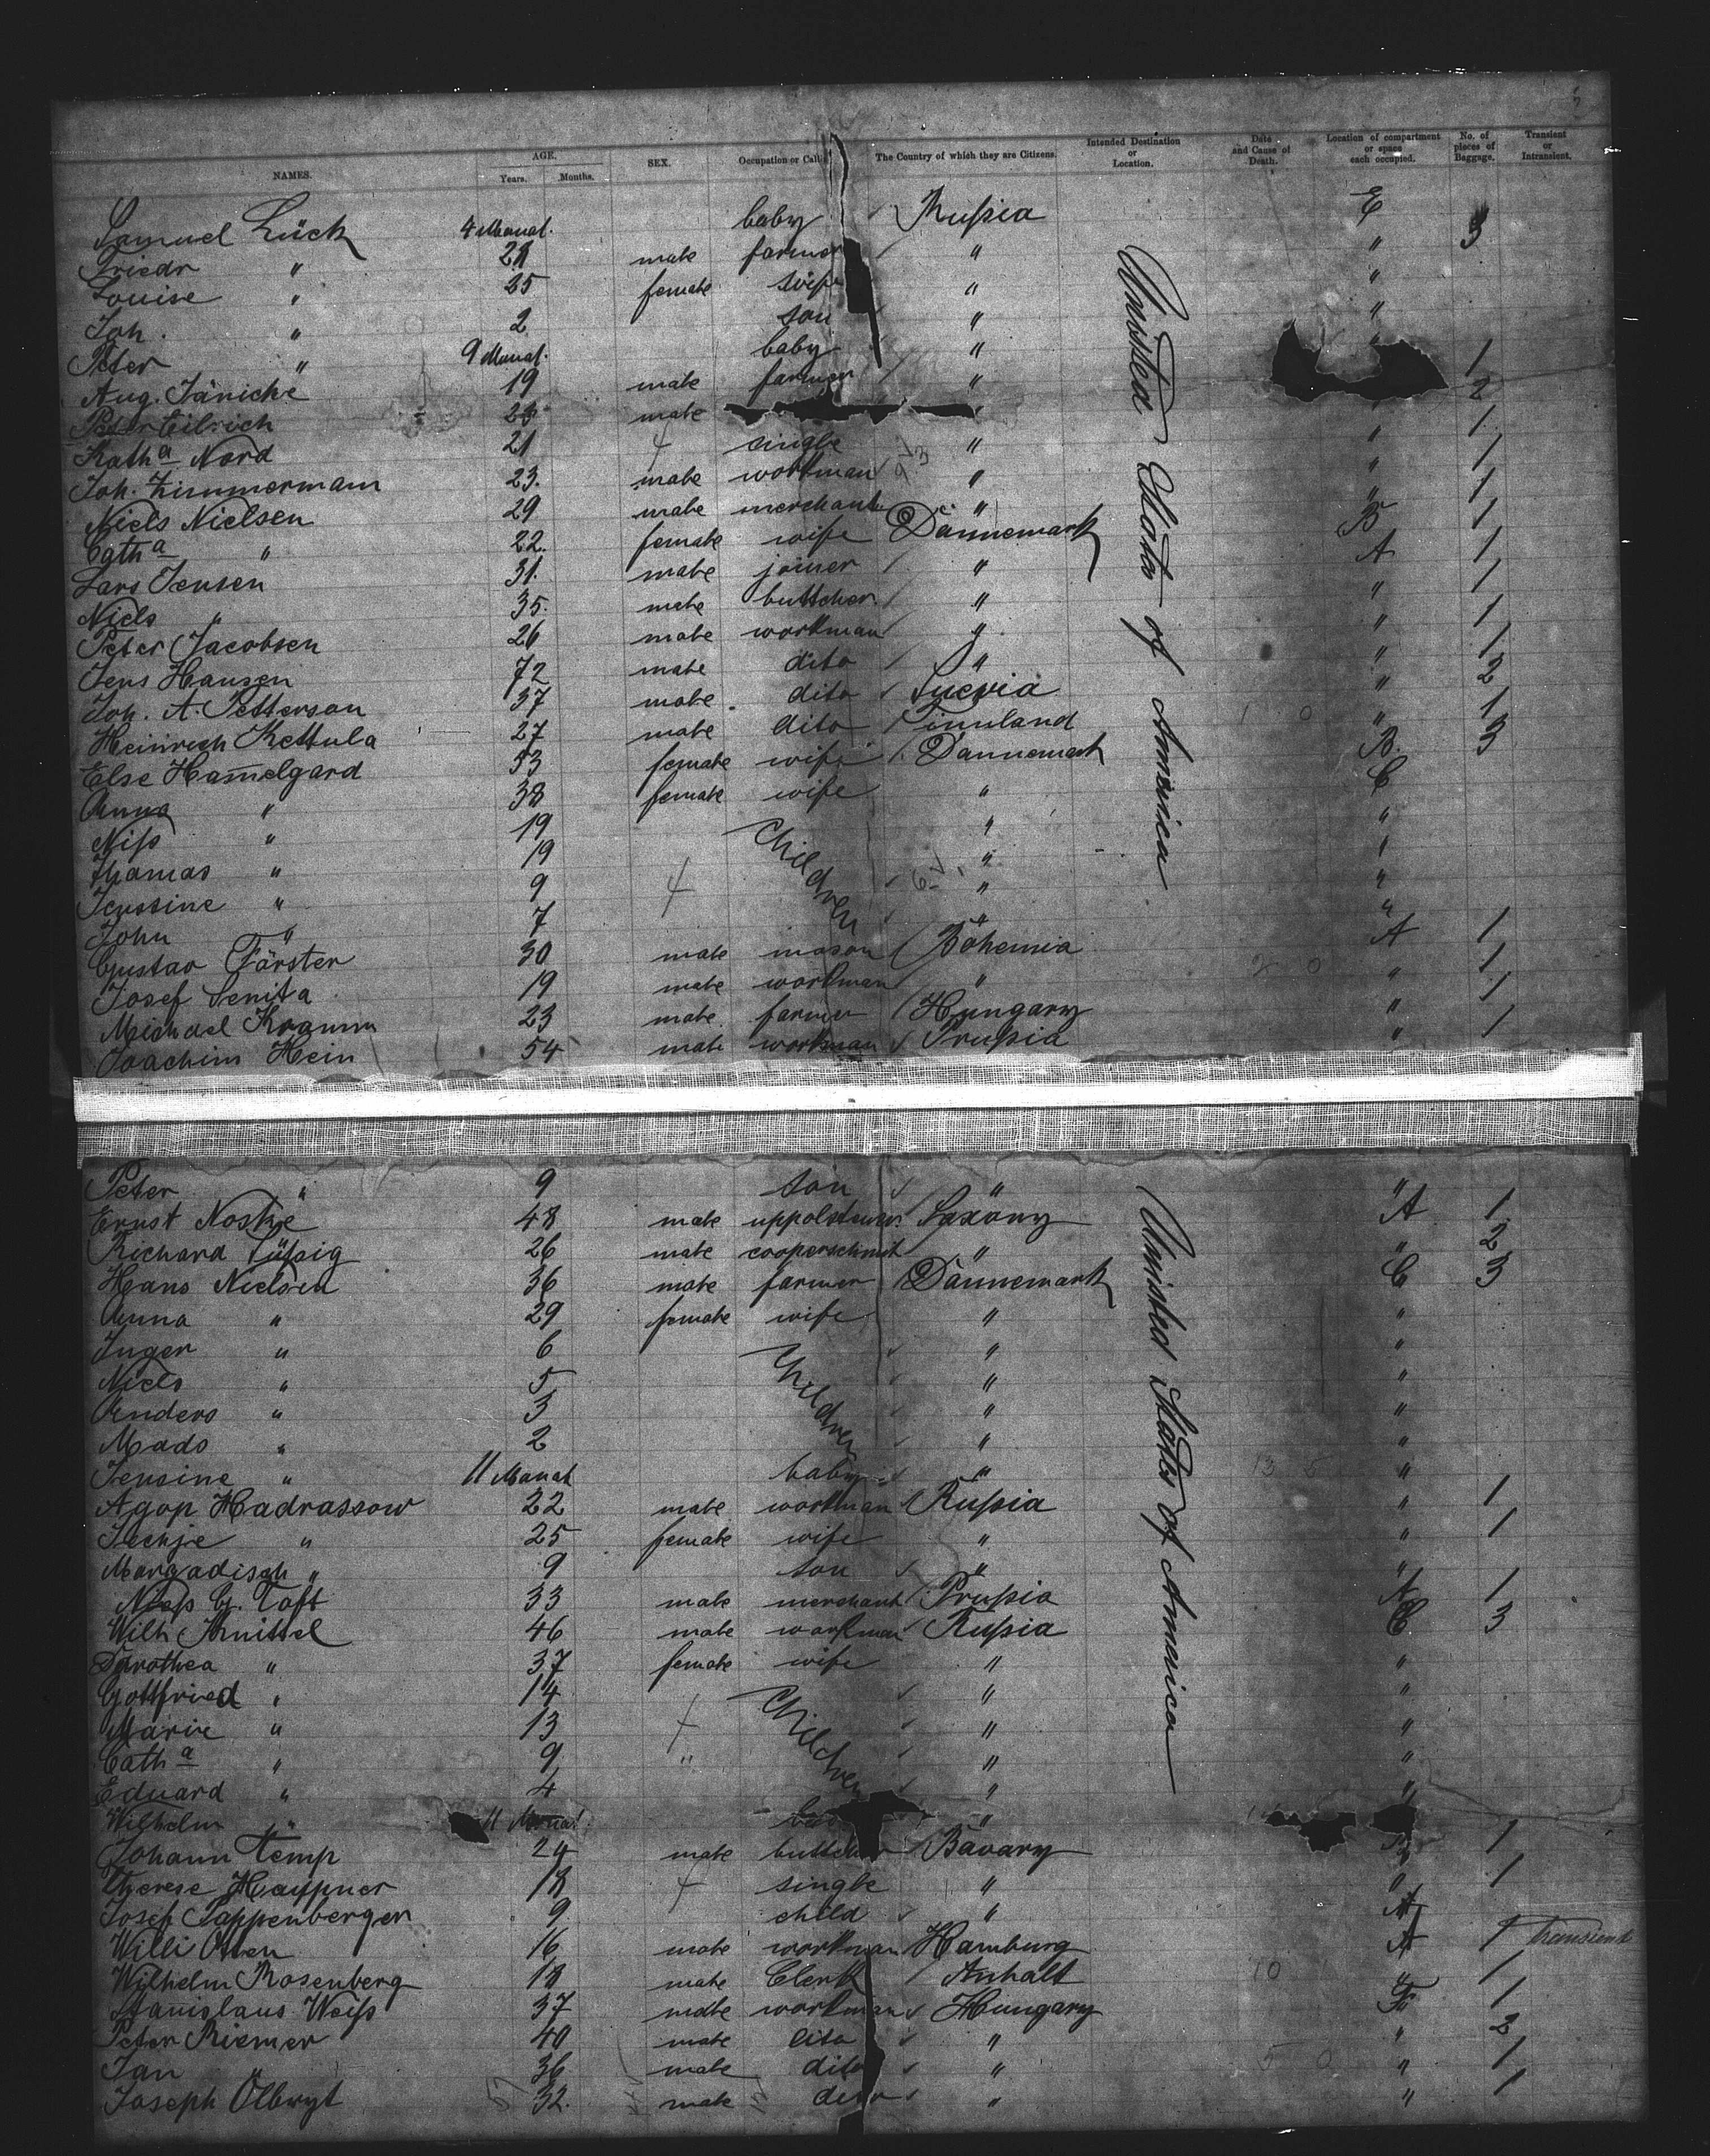 NAMES. AGE. Years. Months. SEX. Occupation or Calling The Country of which they are Citizens. Intended Destination or Location. Date and Cause of Death. Location of compartment or space each occupied. No. of pieces of Baggage. Transient or Intransient.
Samuel Lück 4 Monat. baby Rußia E
Friedr " 28 male farmer " " 3
Louise " 25 female wife " "
Joh. " 2 son " "
Peter " 9 Monat. baby "
Aug. Jänicke 19 male farmer " 1
Peter Eilrich 23 male " 2
Kath<sup>a</sup> Nord 21 single " " 1
Joh. Zimmermann 23. male workman " " 1
Niels Nielsen 29 male merchant " " 1
Cath<sup>a</sup> " 22. female wife Dännemark B 1
Lars Jensen 31. male joiner " A 1
Niels " 35. male buttcher " " 1
Peter Jacobsen 26 male workman " " 1
Jens Hansen 72 male dito " " 1
Joh. A. Petterson 37 male dito Suevia " 2
Heinrich Kettula 27 male dito Finnland " 1
Else Hammelgard 53 female wife Dännemark B. 3
Anna " 38 female wife " C
Niß " 19 Children " "
Thomas " 19 "
Jenssine " 9 " "
John " 7 " "
Gustav Färster 30 male mason Böhemia A 1
Josef Senita 19 male workman " " 1
Michael Kramm 23 male farmer Hungary " 1
Joachim Hein 54 male workman Prußia " 1
Unisted States of America
Peter " 9 son " "
Ernst Noske 48 male uppolsterer Saxony A 1
Richard Süßig 26 male cooperschmit " " 2
Hans Nielsen 36 male farmer Dännemark C 3
Anna " 29 female wife " "
Inger " 6 Children " "
Niels " 5 " "
Anders " 3 " "
Mads " 2 " "
Jensine " 11 Monat baby " "
Agop Hadrassow 22 male workman Rußia " 1
Techje " 25 female wife " " 1
Margadisch " 9 son " "
Niß G. Toft 33 male merchant Prußia A 1
Wilh Knittel 46 male workman Rußia C 3
Dorothea " 37 female wife " "
Gottfried " 14 Children " "
Marie " 13 " "
Cath<sup>a</sup> " 9 " " "
Eduard " 4 " "
Wilhelm " 11 Monat "
Johann Kemp 24 male buttcher Bavary 1
Therese Haypner 18 single " " 1
Josef Pappenberger 9 child "
Willi Otten 16 male workman Hamburg A 1 transient
Wilhelm Rosenberg 18 male Clerk Anhalt " 1
Stanislaus Weiß 37 male workman Hungary F 1
Peter Riemer 40 male dito " " 2
Jan " 36 male dito " " 1
Joseph Olbryt 32. male dito " " 1
Unisted States of America